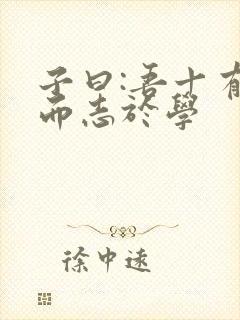 子曰:吾十有
而志於學
徐中遠